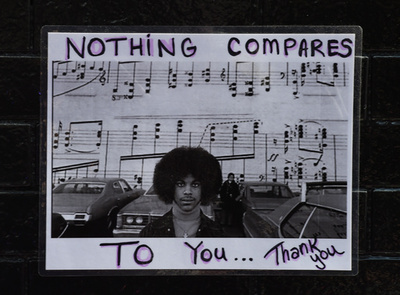 NOTHING COMPARES
TO YOU... Thank
you